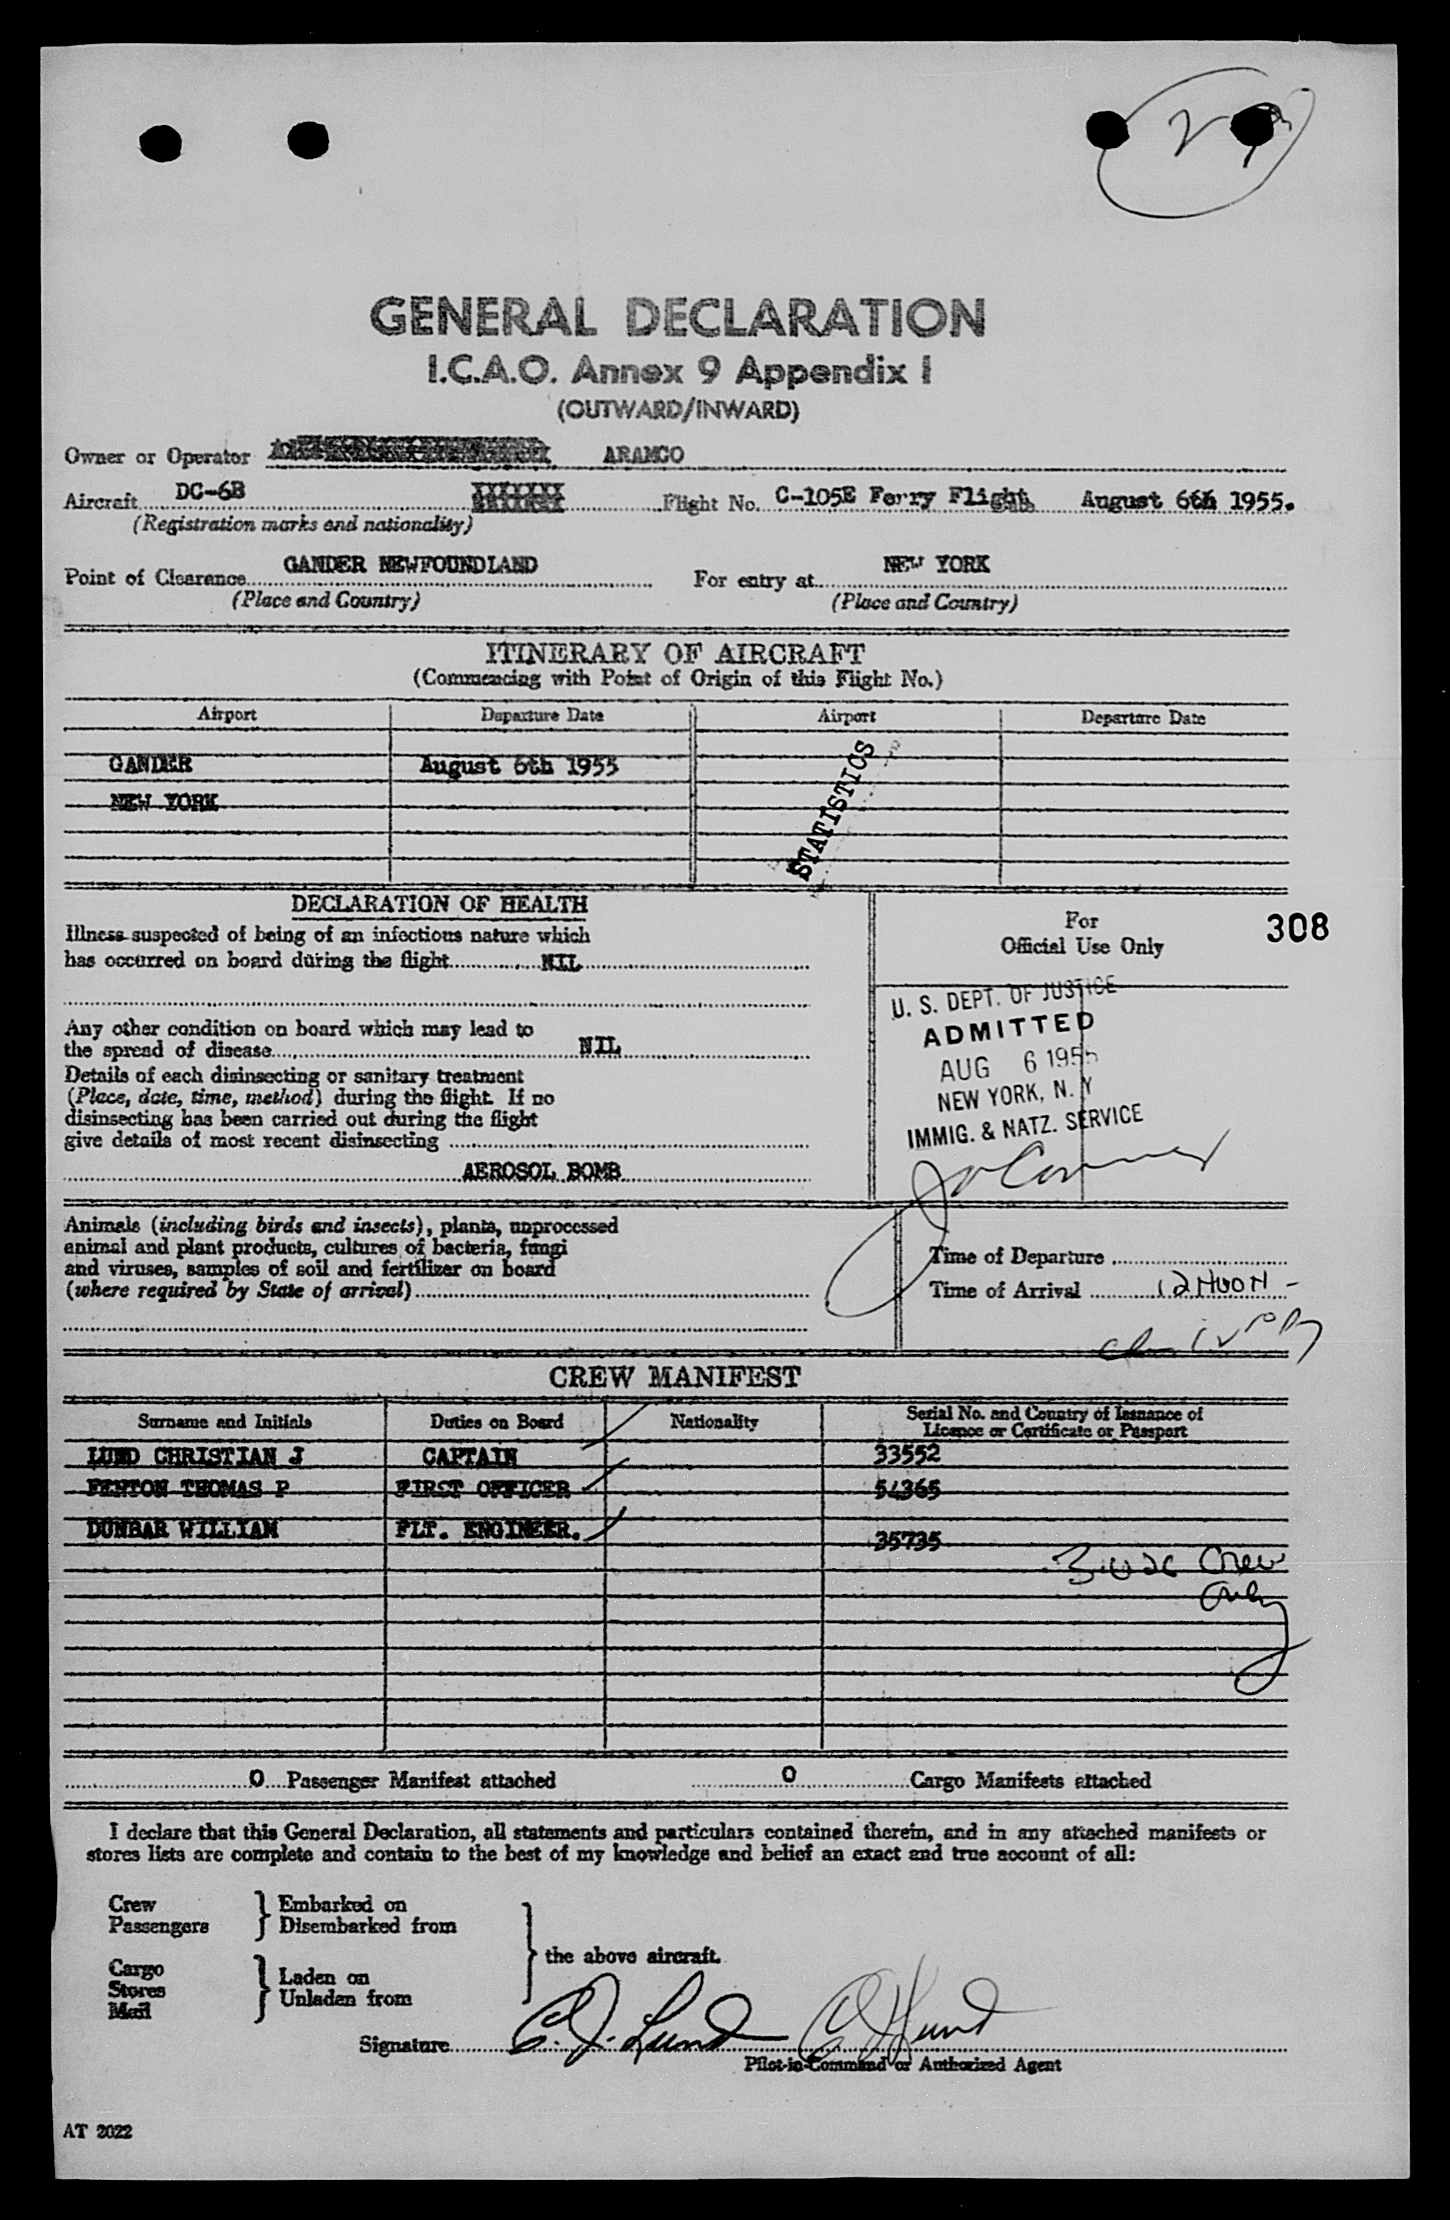 GENERAL DECLARATION
I.C.A.O. Annex 9 Appendix I
(OUTWARD/INWARD)
Owner or Operator ARAMCO
Aircraft DC-6B Flight No. C-105E Ferry Flight August 6th 1955.
(Registration marks and nationality)
Point of Clearance GANDER NEWFOUNDLAND For entry at NEW YORK
(Place and Country) (Place and Country)
ITINERARY OF AIRCRAFT
(Commencing with Point of Origin of this Flight No.)
Airport Departure Date Airport Departure Date
GANDER August 6th 1955
NEW YORK
STATISTICS
DECLARATION OF HEALTH
Illness suspected of being of an infectious nature which
has occurred on board during the flight NIL
Any other condition on board which may lead to
the spread of disease NIL
Details of each disinsecting or sanitary treatment
(Place, date, time, method) during the flight. If no
disinsecting has been carried out during the flight
give details of most recent disinsecting
AEROSOL BOMB
For
Official Use Only
308
U. S. DEPT. OF JUSTICE
ADMITTED
AUG 6 1955
NEW YORK, N. Y
IMMIG. & NATZ. SERVICE
Animals (including birds and insects), plants, unprocessed
animal and plant products, cultures of bacteria, fungi
and viruses, samples of soil and fertilizer on board
(where required by State of arrival)
Time of Departure
Time of Arrival 12 NOON -
CREW MANIFEST
Surname and Initials Duties on Board Nationality Serial No. and Country of Issuance of
Licence or Certificate or Passport
LUND CHRISTIAN J CAPTAIN 33552
FENTON THOMAS P FIRST OFFICER 54365
DUNBAR WILLIAM FLT. ENGINEER. 35735
3 USC Crew
Only
0 Passenger Manifest attached 0 Cargo Manifests attached
I declare that this General Declaration, all statements and particulars contained therein, and in any attached manifests or
stores lists are complete and contain to the best of my knowledge and belief an exact and true account of all:
Crew
Passengers
Embarked on
Disembarked from
Cargo
Stores
Mail
Laden on
Unladen from
the above aircraft.
Signature C. J. Lund C J Lund
Pilot-in-Command or Authorized Agent
AT 2022